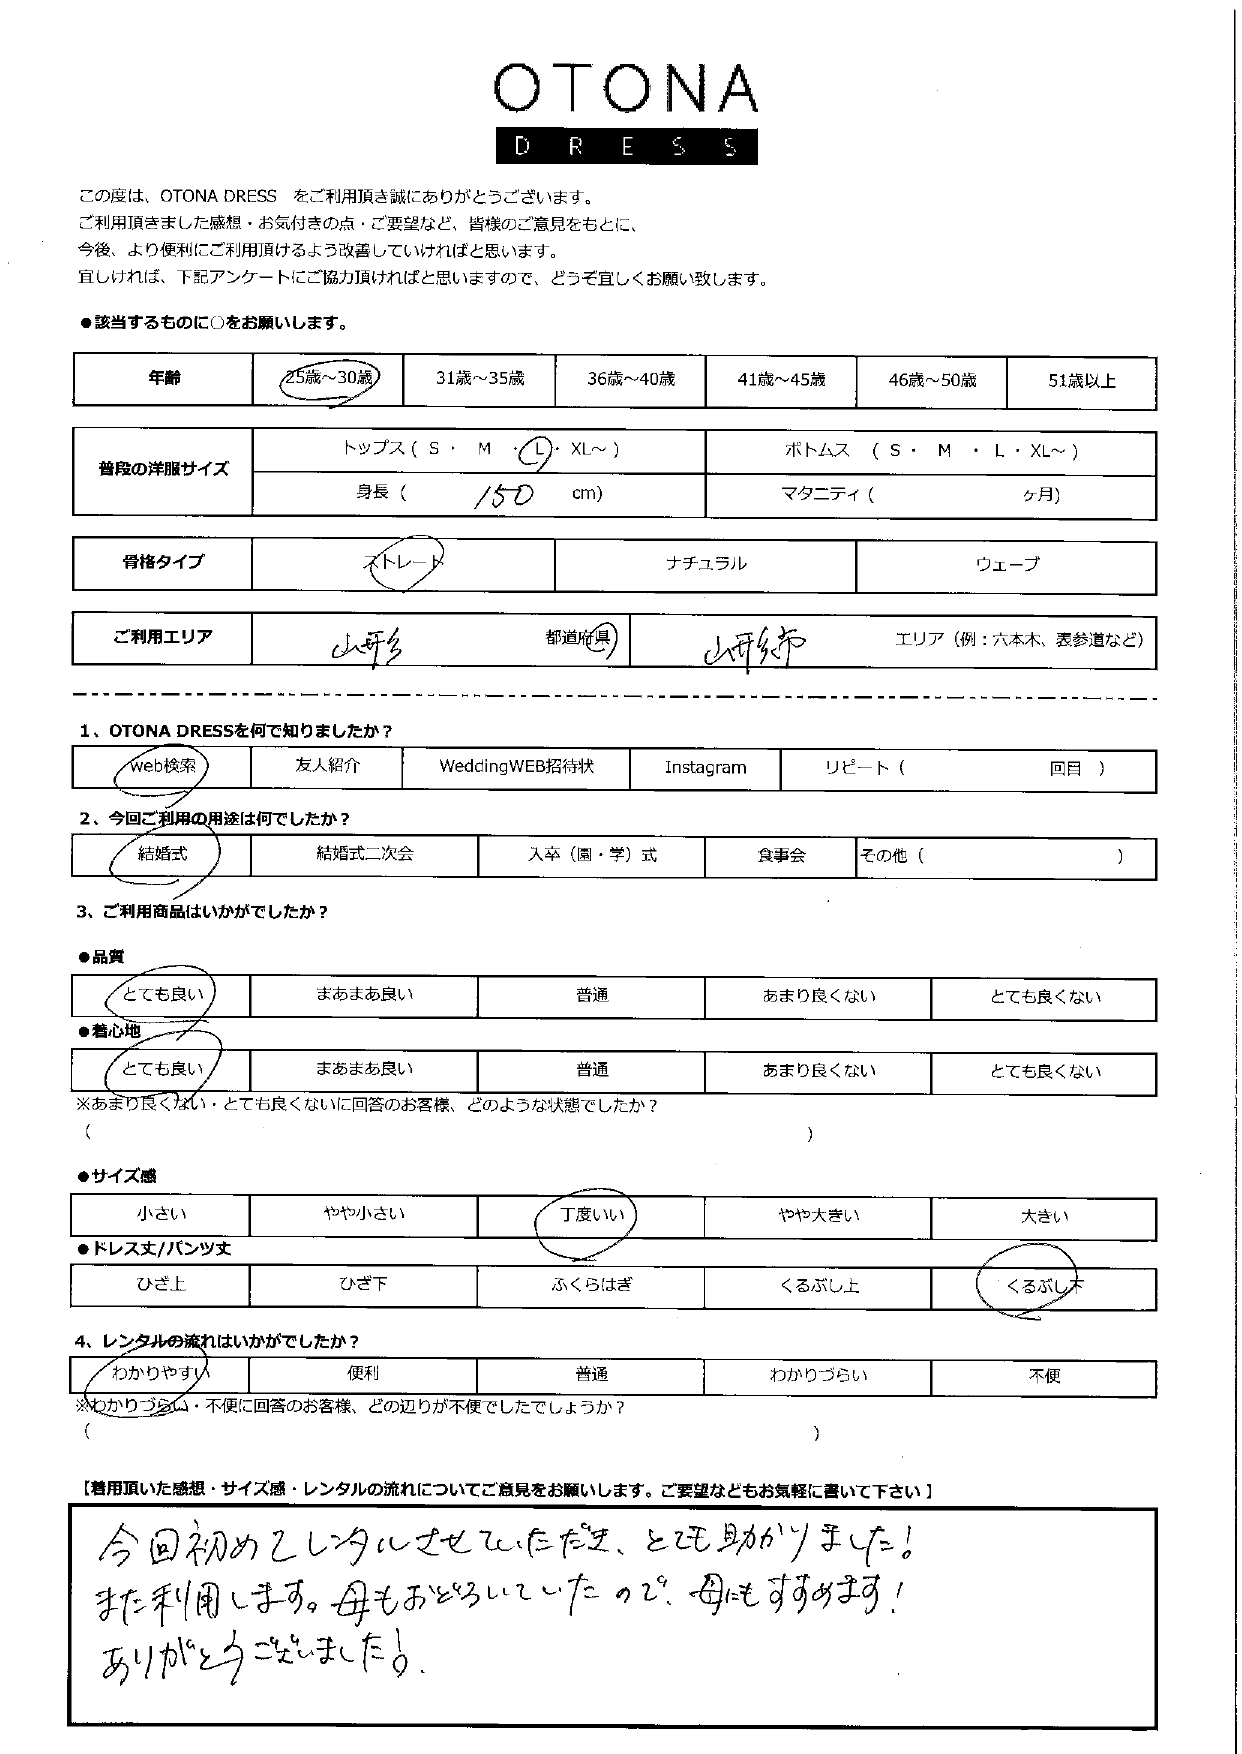 OTONA
DRESS
この度は、OTONA DRESS　をご利用頂き誠にありがとうございます。
ご利用頂きました感想・お気付きの点・ご要望など、皆様のご意見をもとに、
今後、より便利にご利用頂けるよう改善していければと思います。
宜しければ、下記アンケートにご協力頂ければと思いますので、どうぞ宜しくお願い致します。
●該当するものに○をお願いします。
年齢 25歳～30歳 31歳～35歳 36歳～40歳 41歳～45歳 46歳～50歳 51歳以上
普段の洋服サイズ トップス ( S ・ M ・ L ・ XL～ ) ボトムス ( S ・ M ・ L ・ XL～ )
身長 ( 150 cm) マタニティ ( ヶ月)
骨格タイプ ストレート ナチュラル ウェーブ
ご利用エリア 山形 都道府県 山形市 エリア（例：六本木、表参道など）
1、OTONA DRESSを何で知りましたか？
web検索 友人紹介 WeddingWEB招待状 Instagram リピート ( 回目 )
2、今回ご利用の用途は何でしたか？
結婚式 結婚式二次会 入卒（園・学）式 食事会 その他 ( )
3、ご利用商品はいかがでしたか？
●品質
とても良い まあまあ良い 普通 あまり良くない とても良くない
●着心地
とても良い まあまあ良い 普通 あまり良くない とても良くない
※あまり良くない・とても良くないに回答のお客様、どのような状態でしたか？
( )
●サイズ感
小さい やや小さい 丁度いい やや大きい 大きい
●ドレス丈/パンツ丈
ひざ上 ひざ下 ふくらはぎ くるぶし上 くるぶし下
4、レンタルの流れはいかがでしたか？
わかりやすい 便利 普通 わかりづらい 不便
※わかりづらい・不便に回答のお客様、どの辺りが不便でしたでしょうか？
( )
【着用頂いた感想・サイズ感・レンタルの流れについてご意見をお願いします。ご要望などもお気軽に書いて下さい】
今回初めてレンタルさせていただき、とても助かりました！
また利用します。母もおどろいていたので、母にもすすめます！
ありがとうございました！